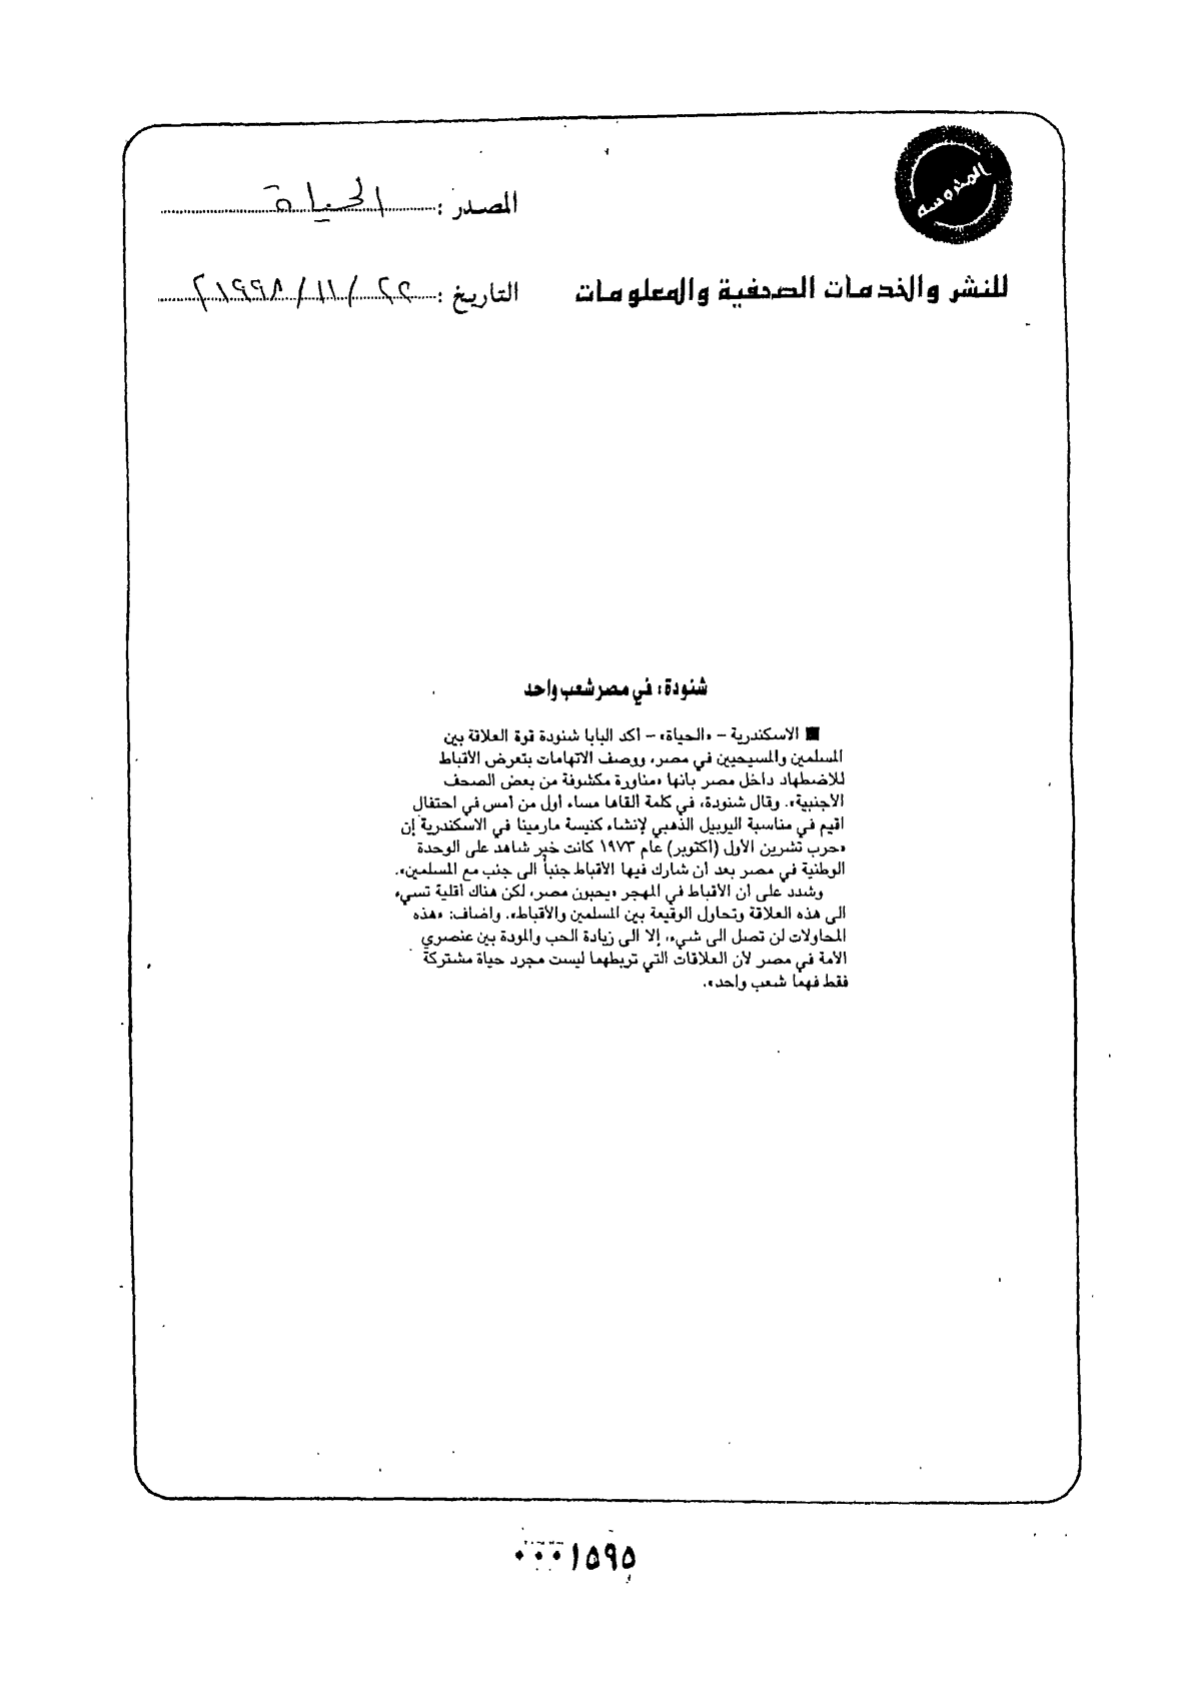 المحروسة
المصدر : الحياة
للنشر والخدمات الصحفية والمعلومات
التاريخ : ٢٢ / ١١ / ١٩٩٨م
شنودة: في مصر شعب واحد
■ الاسكندرية – «الحياة» – اكد البابا شنودة قوة العلاقة بين
المسلمين والمسيحيين في مصر، ووصف الاتهامات بتعرض الأقباط
للاضطهاد داخل مصر بانها «مناورة مكشوفة من بعض الصحف
الأجنبية». وقال شنودة، في كلمة القاها مساء اول من امس في احتفال
اقيم في مناسبة اليوبيل الذهبي لإنشاء كنيسة مارمينا في الاسكندرية إن
«حرب تشرين الأول (أكتوبر) عام ١٩٧٣ كانت خير شاهد على الوحدة
الوطنية في مصر بعد ان شارك فيها الأقباط جنباً الى جنب مع المسلمين».
وشدد على ان الأقباط في المهجر «يحبون مصر، لكن هناك اقلية تسيء
الى هذه العلاقة وتحاول الوقيعة بين المسلمين والأقباط». واضاف: «هذه
المحاولات لن تصل الى شيء، إلا الى زيادة الحب والمودة بين عنصري
الأمة في مصر لأن العلاقات التي تربطهما ليست مجرد حياة مشتركة
فقط فهما شعب واحد».
٠٠٠١٥٩٥